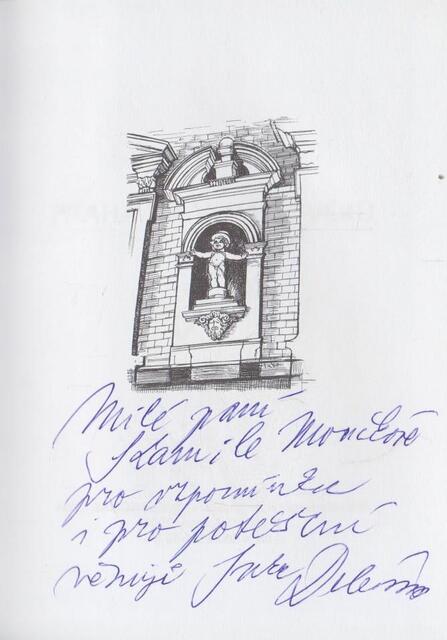 Milé paní
Kamile Moučkové
pro vzpomínku
i pro potěšení
věnuje